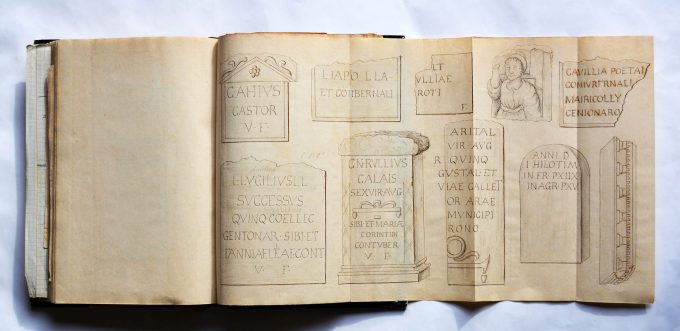 C·AHIVS
CASTOR
V · F·
LIAPO LLA
ET CONBERNALI
LT
VLLIAE
ROTI
F·
GAVILLIA POETAI
CONIVBERNALI
MAIRICOLLV
CENIONARO
L LVCILIVS L L
SVCCESSVS
QVINQ COELLEC
CENTONAR · SIBI·ET
V · F·
CN·RVLLIVS
CALAIS
SEXVIR·AVG
SIBI·ET·MARIAE
CORINTHI
CONTVBER
V F
ARITAL
VIR·AVG
R QVINQ
GVSTAL·ET
VIAE CALLET
OR ARAE
MVNICIPI
RONO
ANNI D
I HILOTIM
IN FR·P·XIIX
IN AGR·P·XV